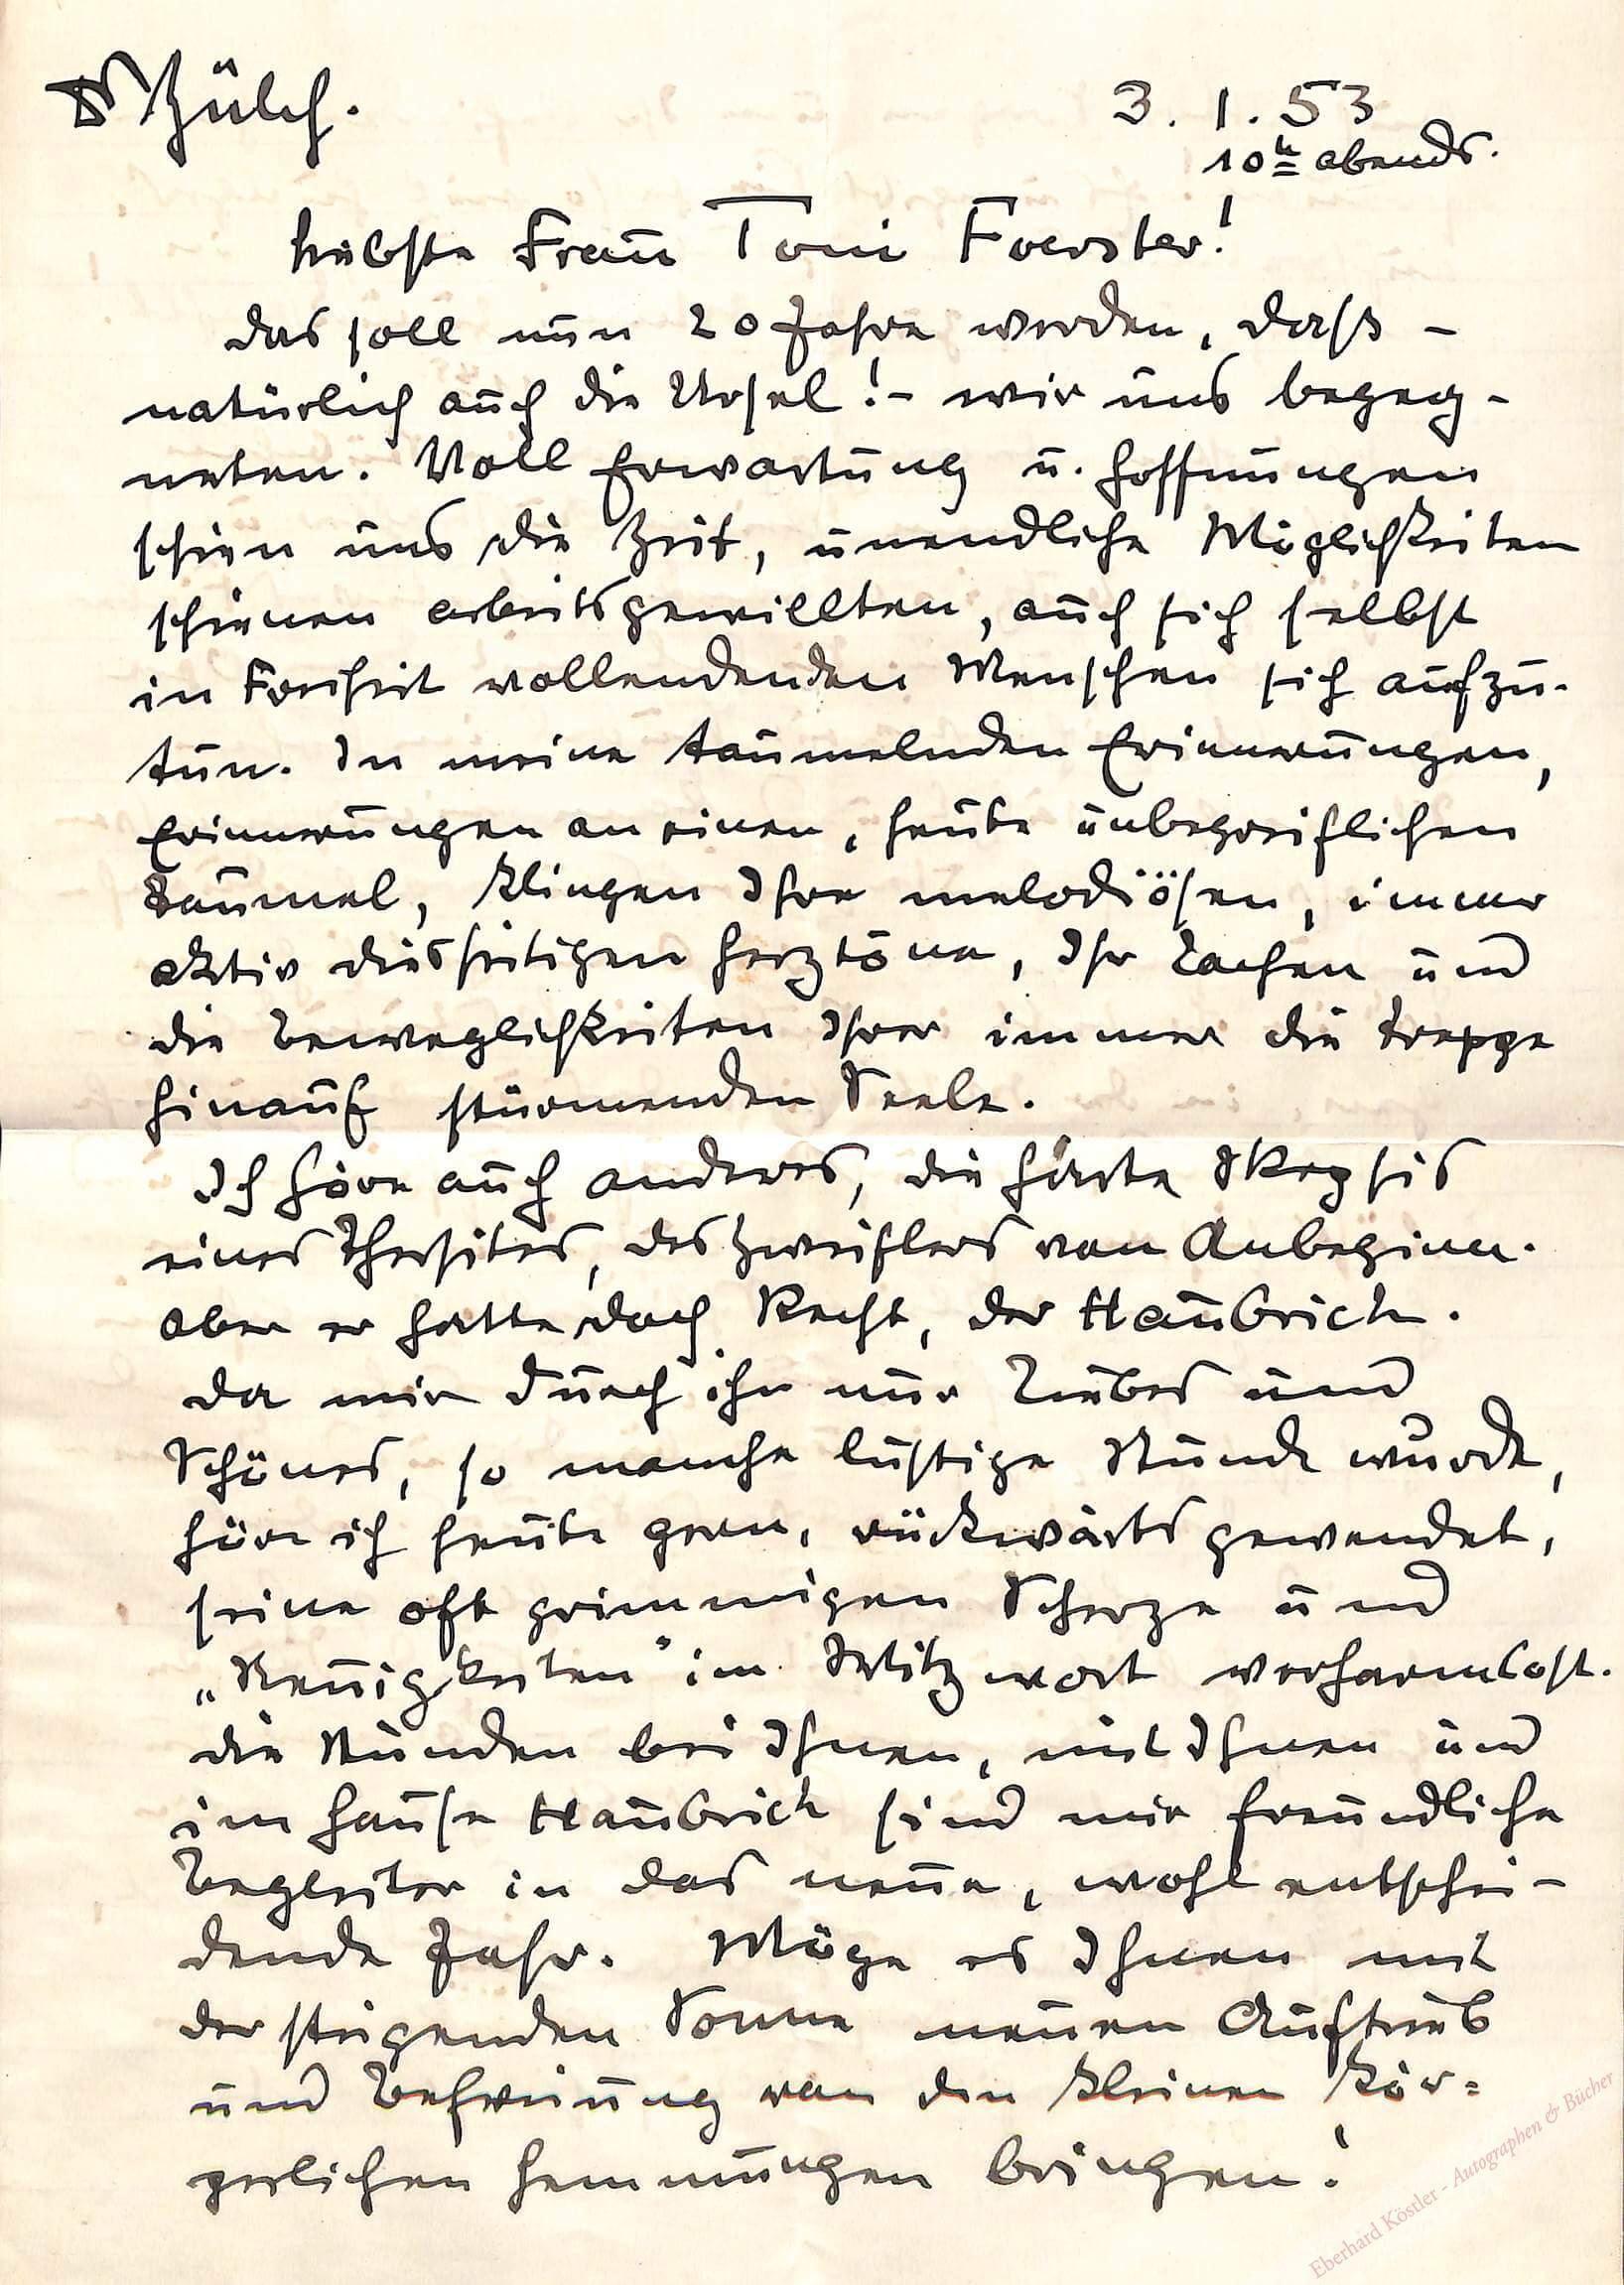 Dr Zülch.
3. 1. 53
10h abends.
Liebste Frau Toni Foerster!
Das soll nun 20 Jahre werden, daß –
natürlich auch die Ursel! – wir uns begeg-
neten. Voll Erwartung u. Hoffnungen
schien uns die Zeit, unendliche Möglichkeiten
schienen arbeitsgewillten, auch sich selbst
in Freiheit vollendenden Menschen sich aufzu-
tun. In meine taumelnden Erinnerungen,
Erinnerungen an einen, heute unbegreiflichen
Taumel, klingen Ihre melodiösen, immer
aktiv diesseitigen Herztöne, Ihr Lachen und
die Beweglichkeiten Ihrer immer die Treppe
hinauf stürmenden Seele.
Ich höre auch anderes, die harte Skepsis
eines Thersites, des Zweiflers von Anbeginn.
Aber er hatte doch Recht, der Haubrich.
Da mir durch ihn nur Liebes und
Schönes, so manche lustige Stunde wurde,
höre ich heute gern, rückwärts gewendet,
seine oft grimmigen Scherze und
„Neuigkeiten" im Witzwort verharmlost.
Die Stunden bei Ihnen, mit Ihnen und
im Hause Haubrich sind mir freundliche
Begleiter in das neue, wohl entschei-
dende Jahr. Möge es Ihnen mit
der steigenden Sonne neuen Auftrieb
und Befreiung von den kleinen kör-
perlichen Hemmungen bringen!
Eberhard Köstler - Autographen & Bücher